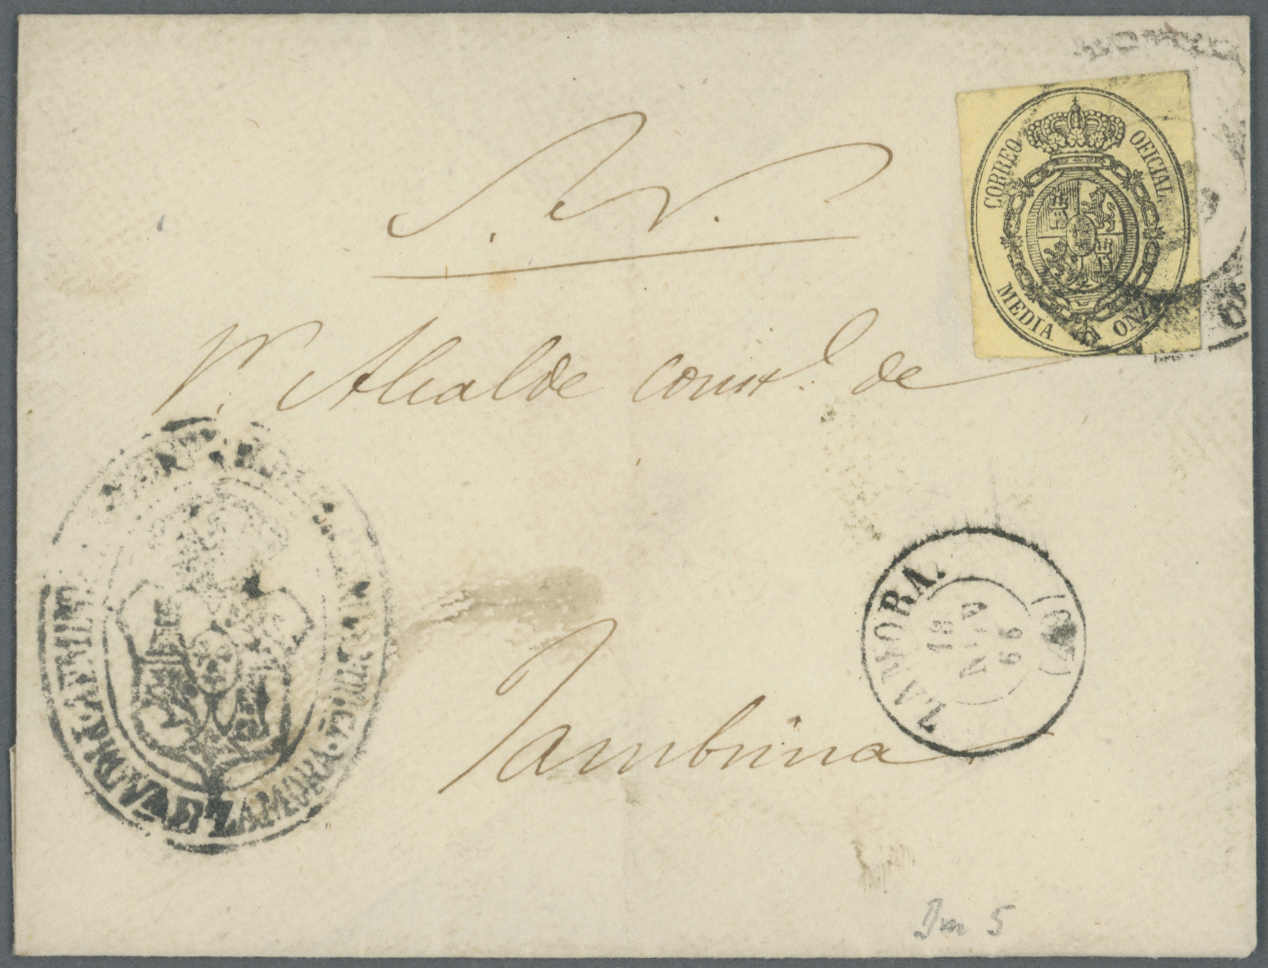 S. N.
CORREO OFICIAL.
MEDIA ONZA
Sr. Alcalde const.l de
Tambrina
ZAMORA.
18
NOV
66
ZAMORA
Dm 5